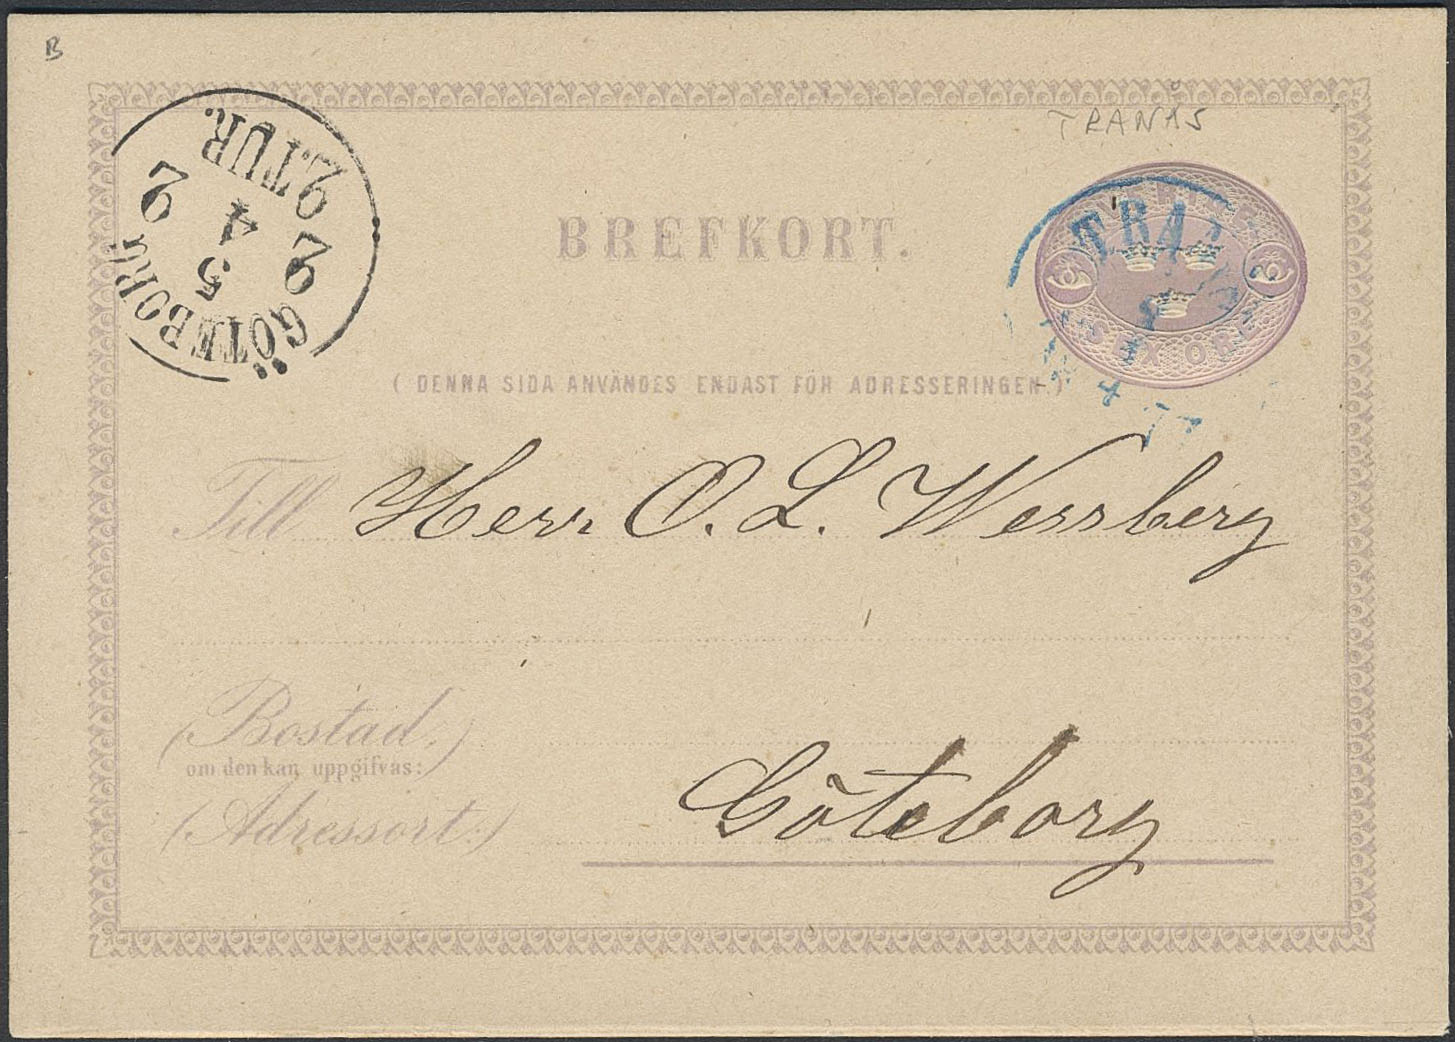 B
TRANÅS
2. TUR.
2 2
4
5
GÖTEBORG
BREFKORT.
SVERIGE
6 6
SEX ÖRE
( DENNA SIDA ANVÄNDES ENDAST FÖR ADRESSERINGEN.)
Till Herr O. L. Wessberg
(Bostad,
om den kan uppgifvas:)
(Adressort:) Göteborg